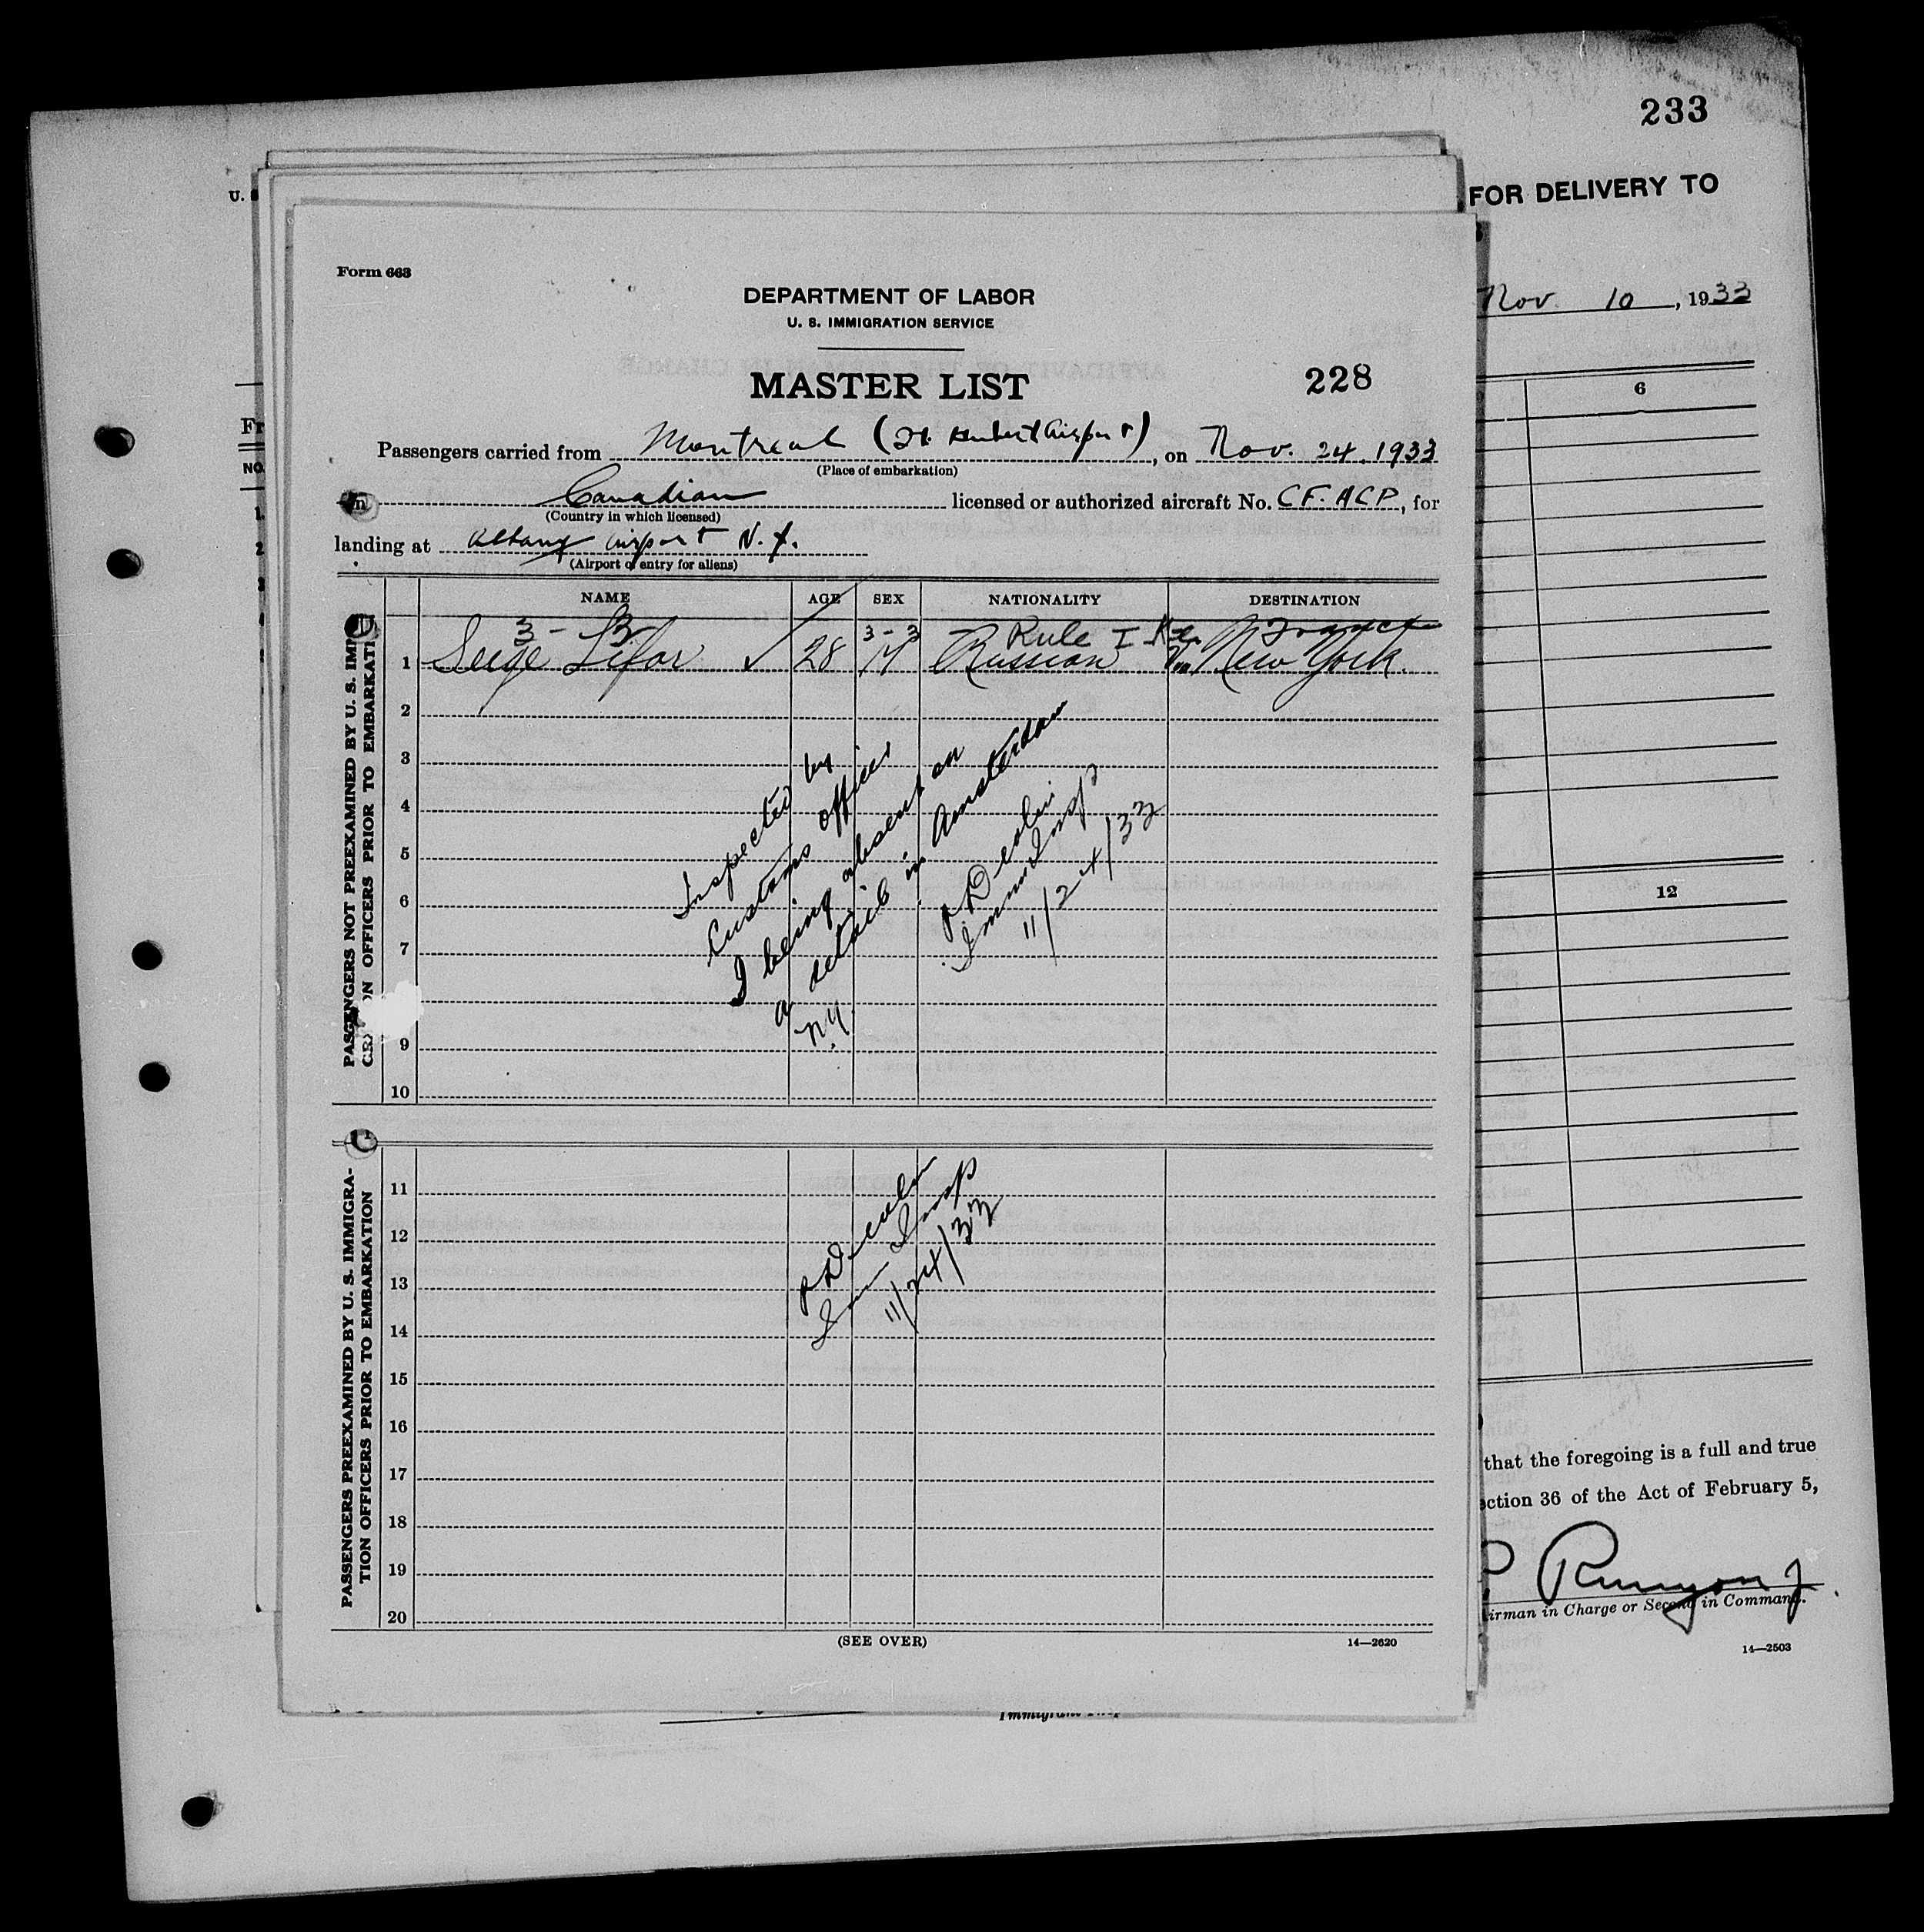 233
U. S
FOR DELIVERY TO
Nov. 10, 1933
Form 663
DEPARTMENT OF LABOR
U. S. IMMIGRATION SERVICE
MASTER LIST
228
Passengers carried from Montreal (St. Hubert Airport), on Nov. 24, 1933
(Place of embarkation)
in Canadian licensed or authorized aircraft No. CF-ACP, for
(Country in which licensed)
landing at Albany Airport N.Y.
(Airport of entry for aliens)
NAME AGE SEX NATIONALITY DESTINATION
3-3 3-3 Rule I France
1 Serge Lifar ✓ 28 M Russian New York
2
3
4
5
6
7
9
10
Inspected by
Customs officer
I being absent on
a detail in Amsterdam
N.Y.
Devlin
Imm Insp
11/24/33
PASSENGERS NOT PREEXAMINED BY U. S. IMMI
GRATION OFFICERS PRIOR TO EMBARKATION
11
12
13
14
15
16
17
18
19
20
Devlin
Imm Insp
11/24/33
PASSENGERS PREEXAMINED BY U. S. IMMIGRA-
TION OFFICERS PRIOR TO EMBARKATION
(SEE OVER)
14—2620
Fr
NO.
1
2
3
6
12
that the foregoing is a full and true
ction 36 of the Act of February 5,
Runyon Jr.
irman in Charge or Second in Command.
14—2503
Immigrant Insp